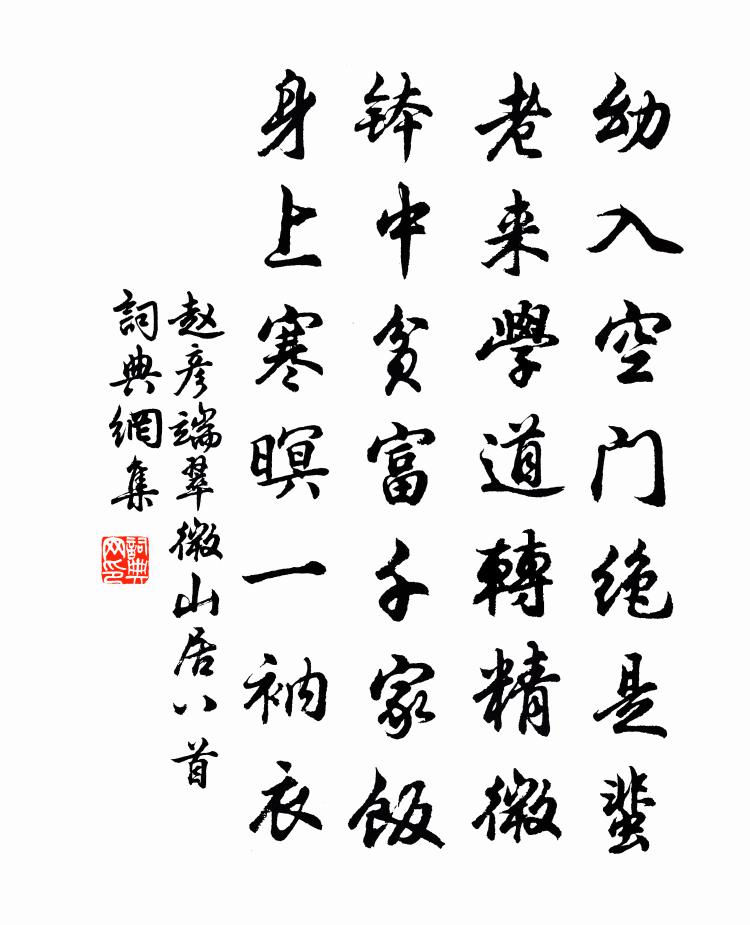 幼入空门绝是蜚
老来學道轉精微
钵中贫富千家飯
身上寒暝一衲衣
赵彦端翠微山居八首
詞典網集
詞典网印